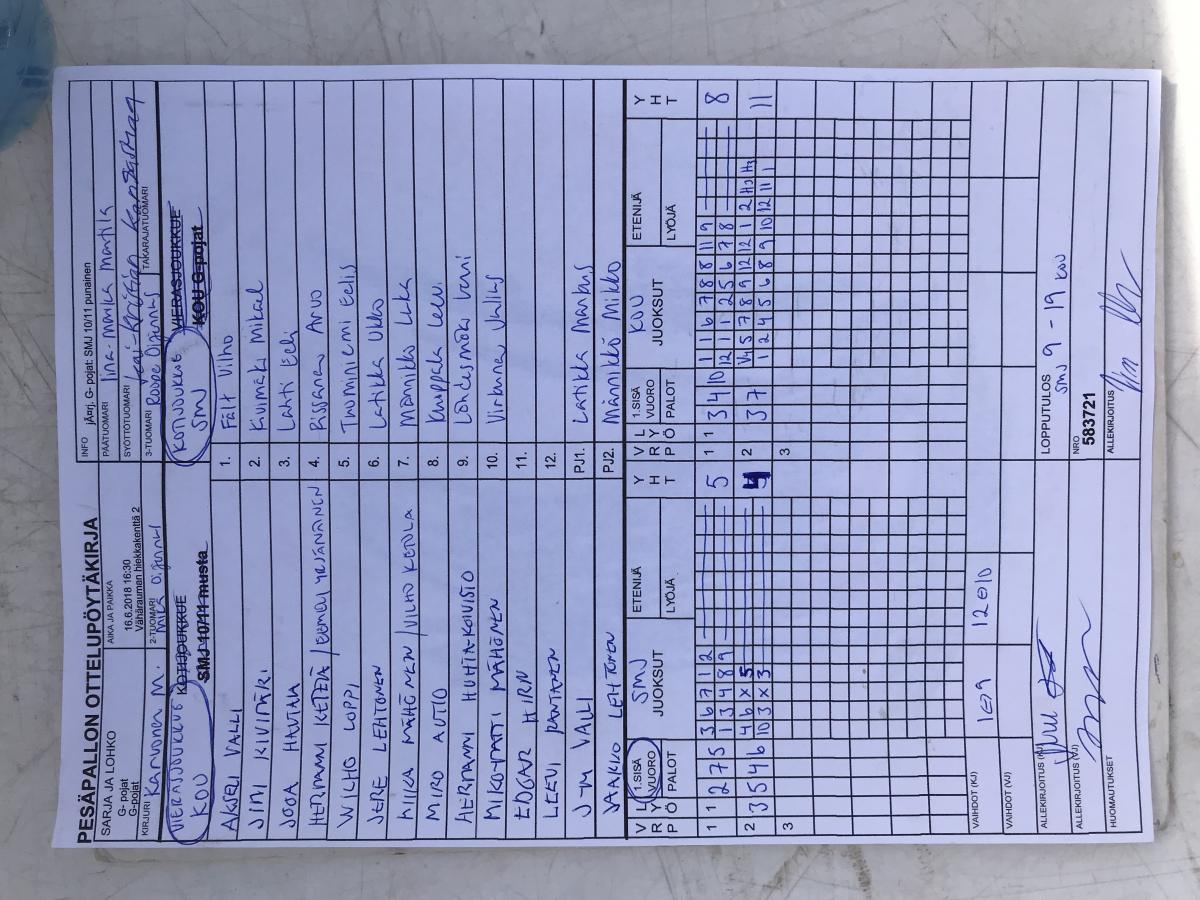 PESÄPALLON OTTELUPÖYTÄKIRJA
SARJA JA LOHKO
G- pojat
G-pojat
AIKA JA PAIKKA
16.6.2018 16:30
Vähärauman hiekkakenttä 2
INFO jÄ¤rj. G- pojat: SMJ 10/11 punainen
PÄÄTUOMARI Iina-Maria Martila
SYÖTTÖTUOMARI Kai-Kristian
KIRJURI Karvonen M.
2-TUOMARI
3-TUOMARI Roope
TAKARAJATUOMARI
VIERASJOUKKUE KOTIJOUKKUE
KOU SMJ 10/11 musta
KOTIJOUKKUE VIERASJOUKKUE
SMJ KOU G-pojat
AKSELI VALLI 1. Fält Vilho
JIMI KIVIMÄKI 2. Kuimäki Mikael
JOOA HAUTAA 3. Lahti Eeli
HERMANNI KETELÄ / 4. Rissanen Arvo
WILHO LOPPI 5. Tuominiemi Eelis
JERE LEHTONEN 6. Latikka Ukko
MIIKA MÄHÖNEN / VILHO KETOLA 7. Männikö Luka
MIRO AUTIO 8. Kuppala Leevi
HERMANNI HUHTA-KOIVISTO 9. Londesmöki Vani
MIKO-MATTI MÄHÖNEN 10. Virkkuna Julius
EDGAR HIRN 11.
LEEVI RANTANEN 12.
J-M VALLI PJ1. Latikka Markus
JAAKKO LEHTONEN PJ2. Männikkö Mikko
V R P L Y Ö 1.SISÄ VUORO PALOT SMJ JUOKSUT ETENIJÄ LYÖJÄ Y H T
V R P L Y Ö 1.SISÄ VUORO PALOT KOU JUOKSUT ETENIJÄ LYÖJÄ Y H T
1 1 2 7 5 3 6 7 1 2 5
1 3 4 8 9
1 1 3 4 10 1 1 6 7 8 8 11 9 8
12 11 2 5 6 7 8
2 3 5 4 6 4 6 x 5 4
10 3 x 3
2 3 7 V4 5 7 8 9 12 12 1 2 H3 H3 11
1 2 4 5 6 8 9 10 12 11 1
3
3
VAIHDOT (KJ) 1e9 12e10
VAIHDOT (VJ)
ALLEKIRJOITUS (KJ)
LOPPUTULOS
SMJ 9 - 19 KOU
ALLEKIRJOITUS (VJ)
NRO
583721
HUOMAUTUKSET
ALLEKIRJOITUS